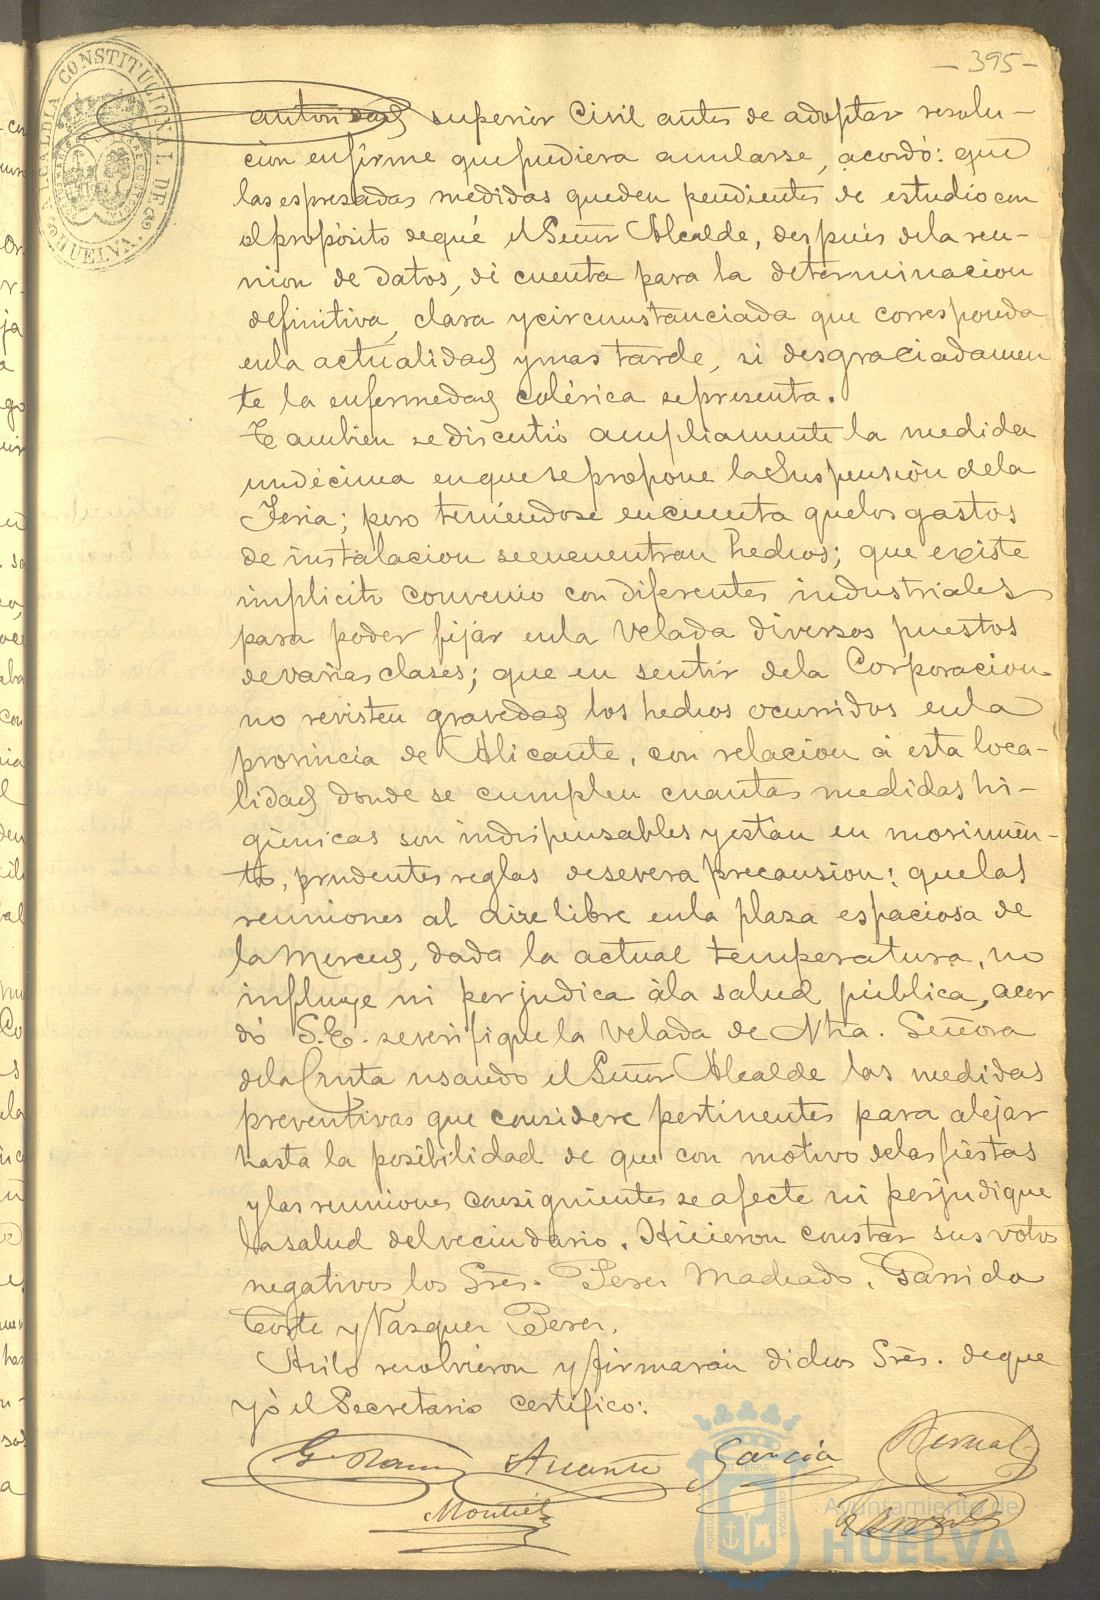 - 395 -
ALCALDIA CONSTITUCIONAL DE HUELVA.
autoridad superior Civil antes de adoptar resolu-
cion enfirme que pudiera anularse, acordó: que
las espresadas medidas queden pendientes de estudio con
el propósito de qué el Señor Alcalde, después dela reu-
nion de datos, dé cuenta para la determinacion
definitiva, clara y circunstanciada que corresponda
enla actualidad y mas tarde, si desgraciadamen
te la enfermedad colérica se presenta.
Tambien se discutió ampliamente la medida
undécima en que se propone la Suspensión dela
Feria; pero teniendose en cuenta que los gastos
de instalacion se encuentran hechos; que existe
implicito convenio con diferentes industriales
para poder fijar enla Velada diversos puestos
de varias clases; que en sentir dela Corporacion
no revisten gravedad los hechos ocurridos enla
provincia de Alicante, con relacion á esta loca-
lidad donde se cumplen cuantas medidas hi-
giénicas son indispensables y están en movimien-
to, prudentes reglas de severa precausion: que las
reuniones al aire libre enla plaza espaciosa de
la Merced, dada la actual temperatura, no
influye ni perjudica àla salud pública, acor
dó S.E. se verifique la Velada de Ntra. Señora
dela Cinta usando el Señor Alcalde las medidas
preventivas que considere pertinentes para alejar
hasta la posibilidad de que con motivo delas fiestas
y las reuniones consiguientes se afecte ni perjudique
la salud del vecindario. Hicieron constar sus votos
negativos los Sres. Perez Machado, Garrido
Corte y Vazquez Perez.
Asilo resolvieron y firmarán dichos Srès. de que
yó el Secretario certifico:
García Bernal
Montiel
Ayuntamiento de
HUELVA